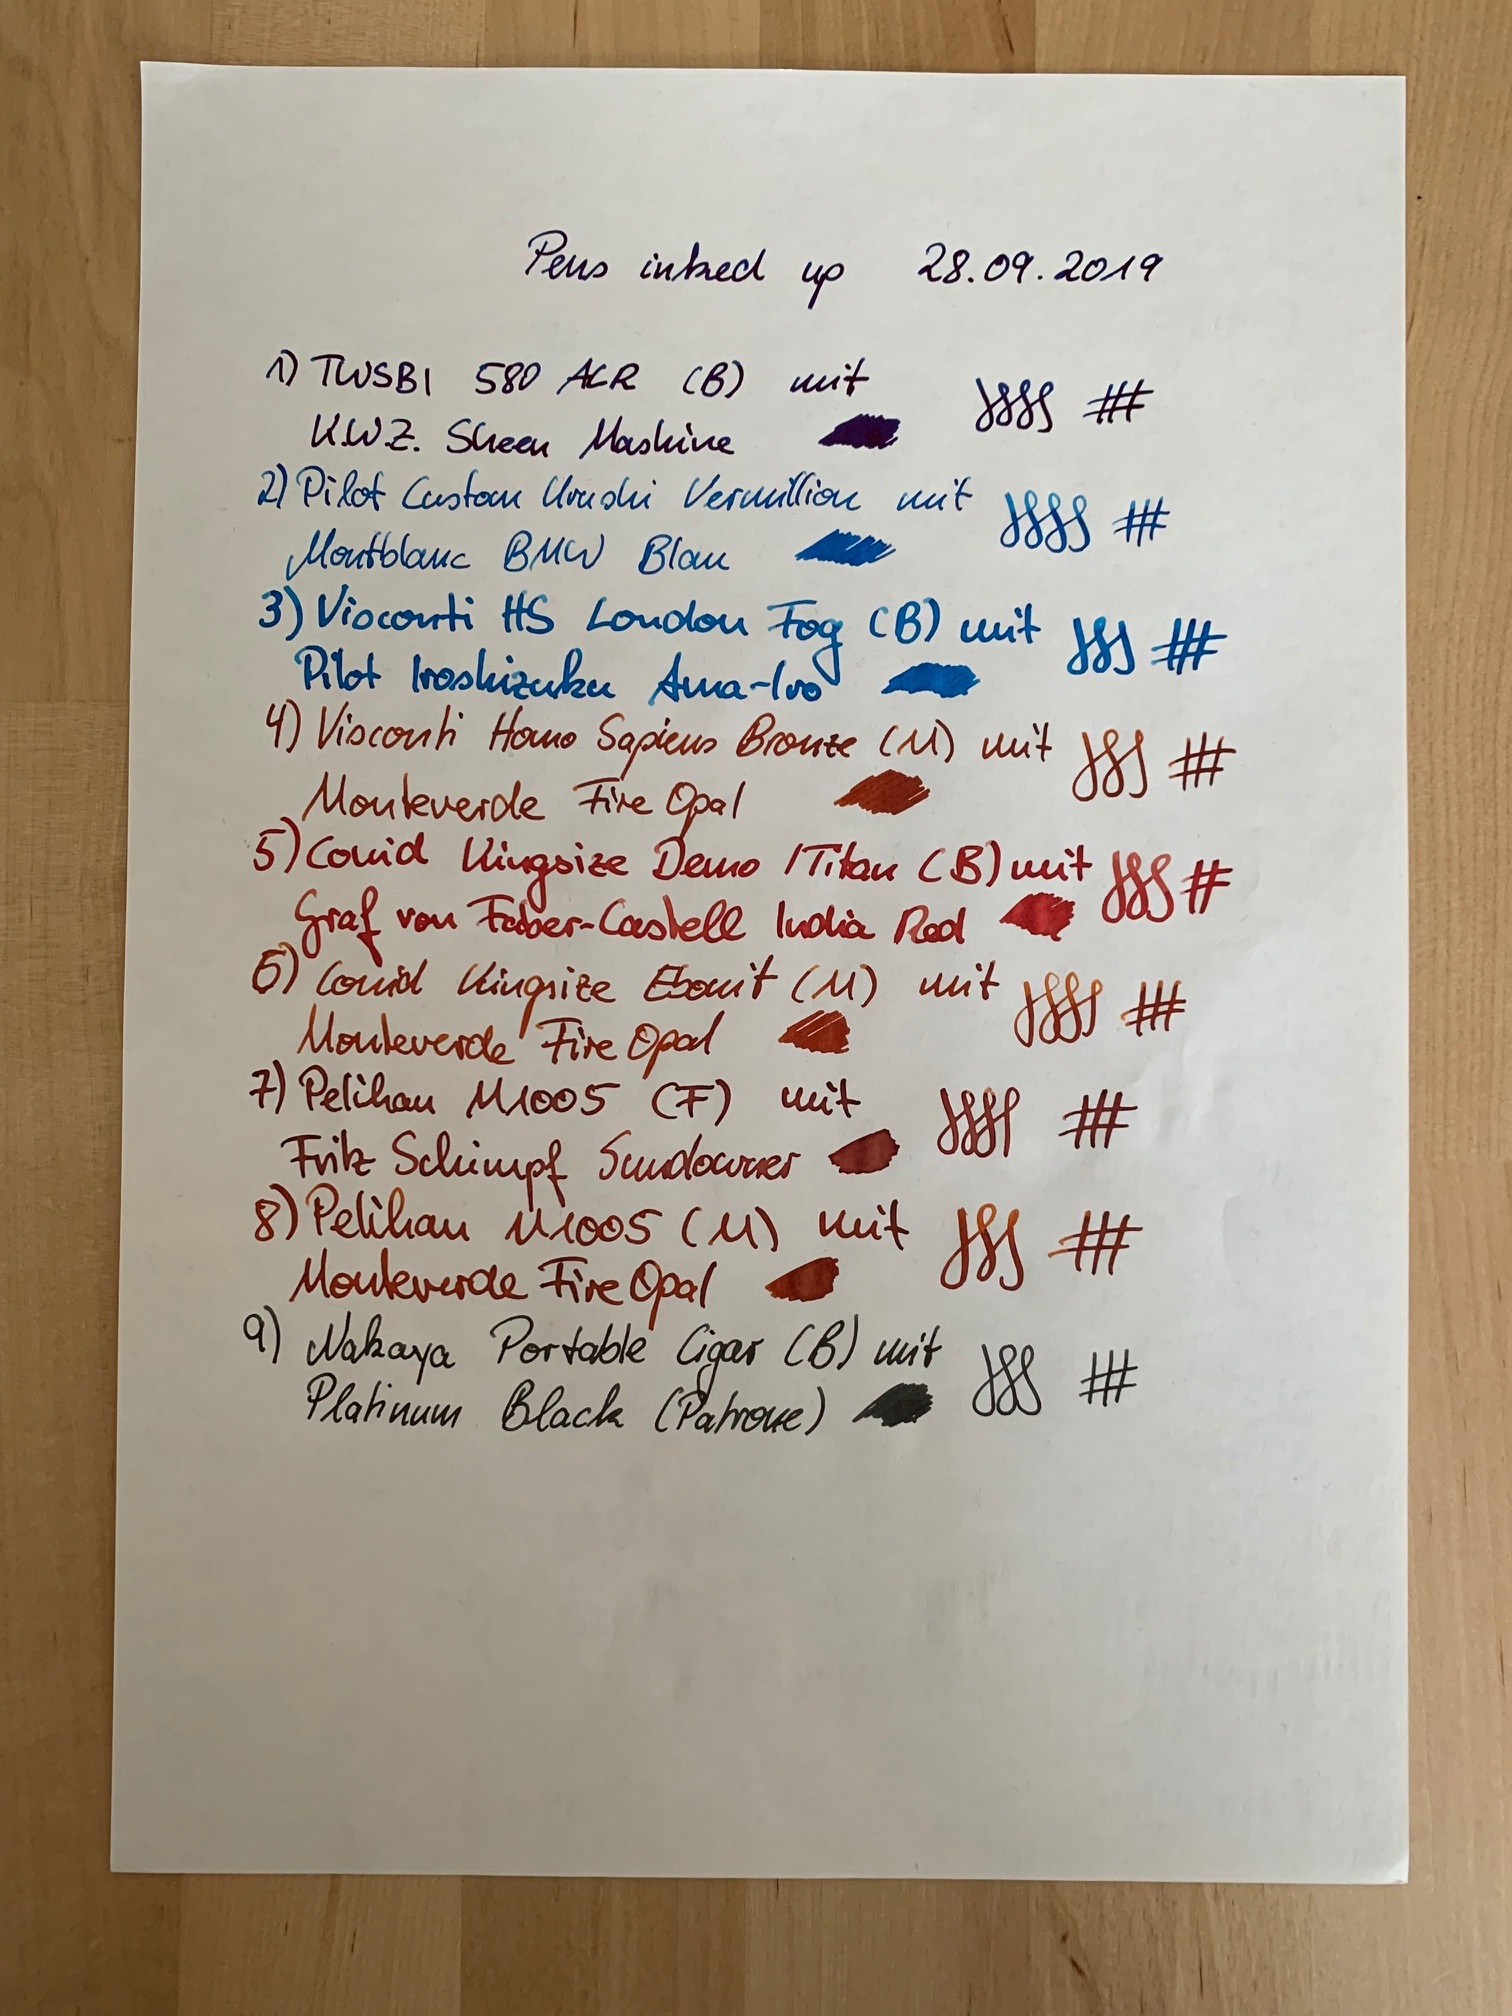 Pens inked up 28.09.2019
1) TWSBI 580 ALR (B) mit
K.W.Z. Sheen Mashine
2) Pilot Custom Urushi Vermillion mit
Montblanc BMW Blau
3) Visconti HS London Fog (B) mit
Pilot Iroshizuku Ama-Iro
4) Visconti Homo Sapiens Bronze (M) mit
Monteverde Fire Opal
5) Conid Kingsize Demo / Titan (B) mit
Graf von Faber-Castell India Red
6) Conid Kingsize Ebonit (M) mit
Monteverde Fire Opal
7) Pelikan M1005 (F) mit
Fritz Schimpf Sundowner
8) Pelikan M1005 (M) mit
Monteverde Fire Opal
9) Nakaya Portable Cigar (B) mit
Platinum Black (Patrone)